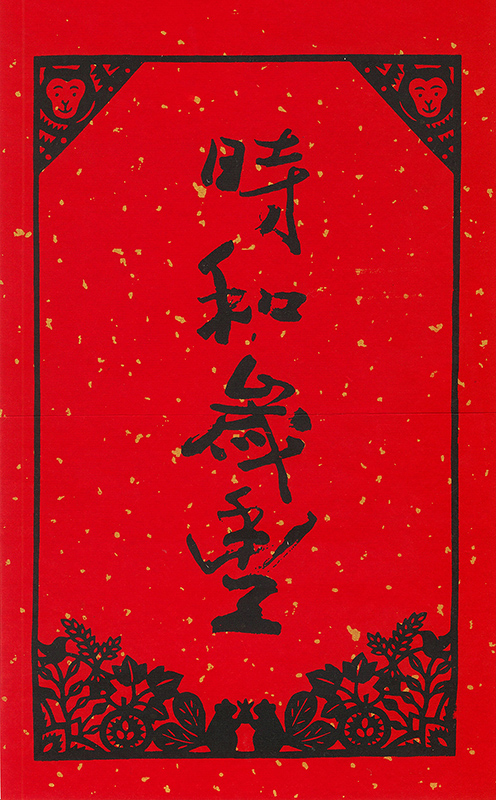 時和歲豐